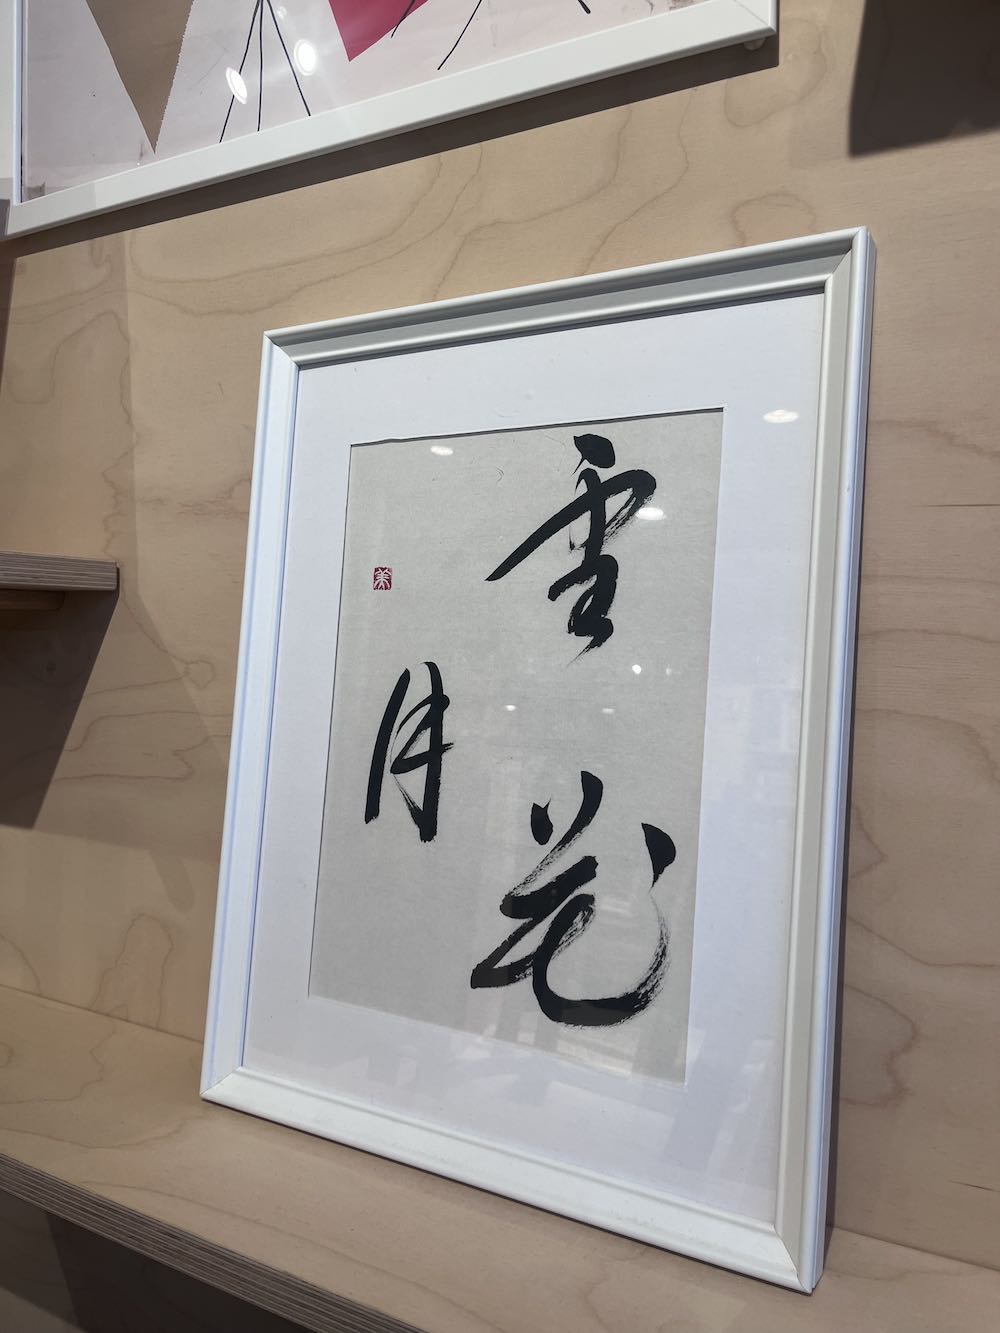 雪花
月
美